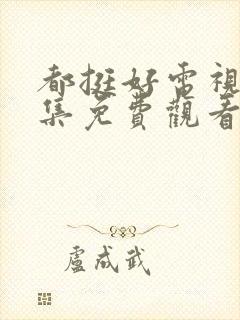 都挺好電視
集免費觀看
盧成武